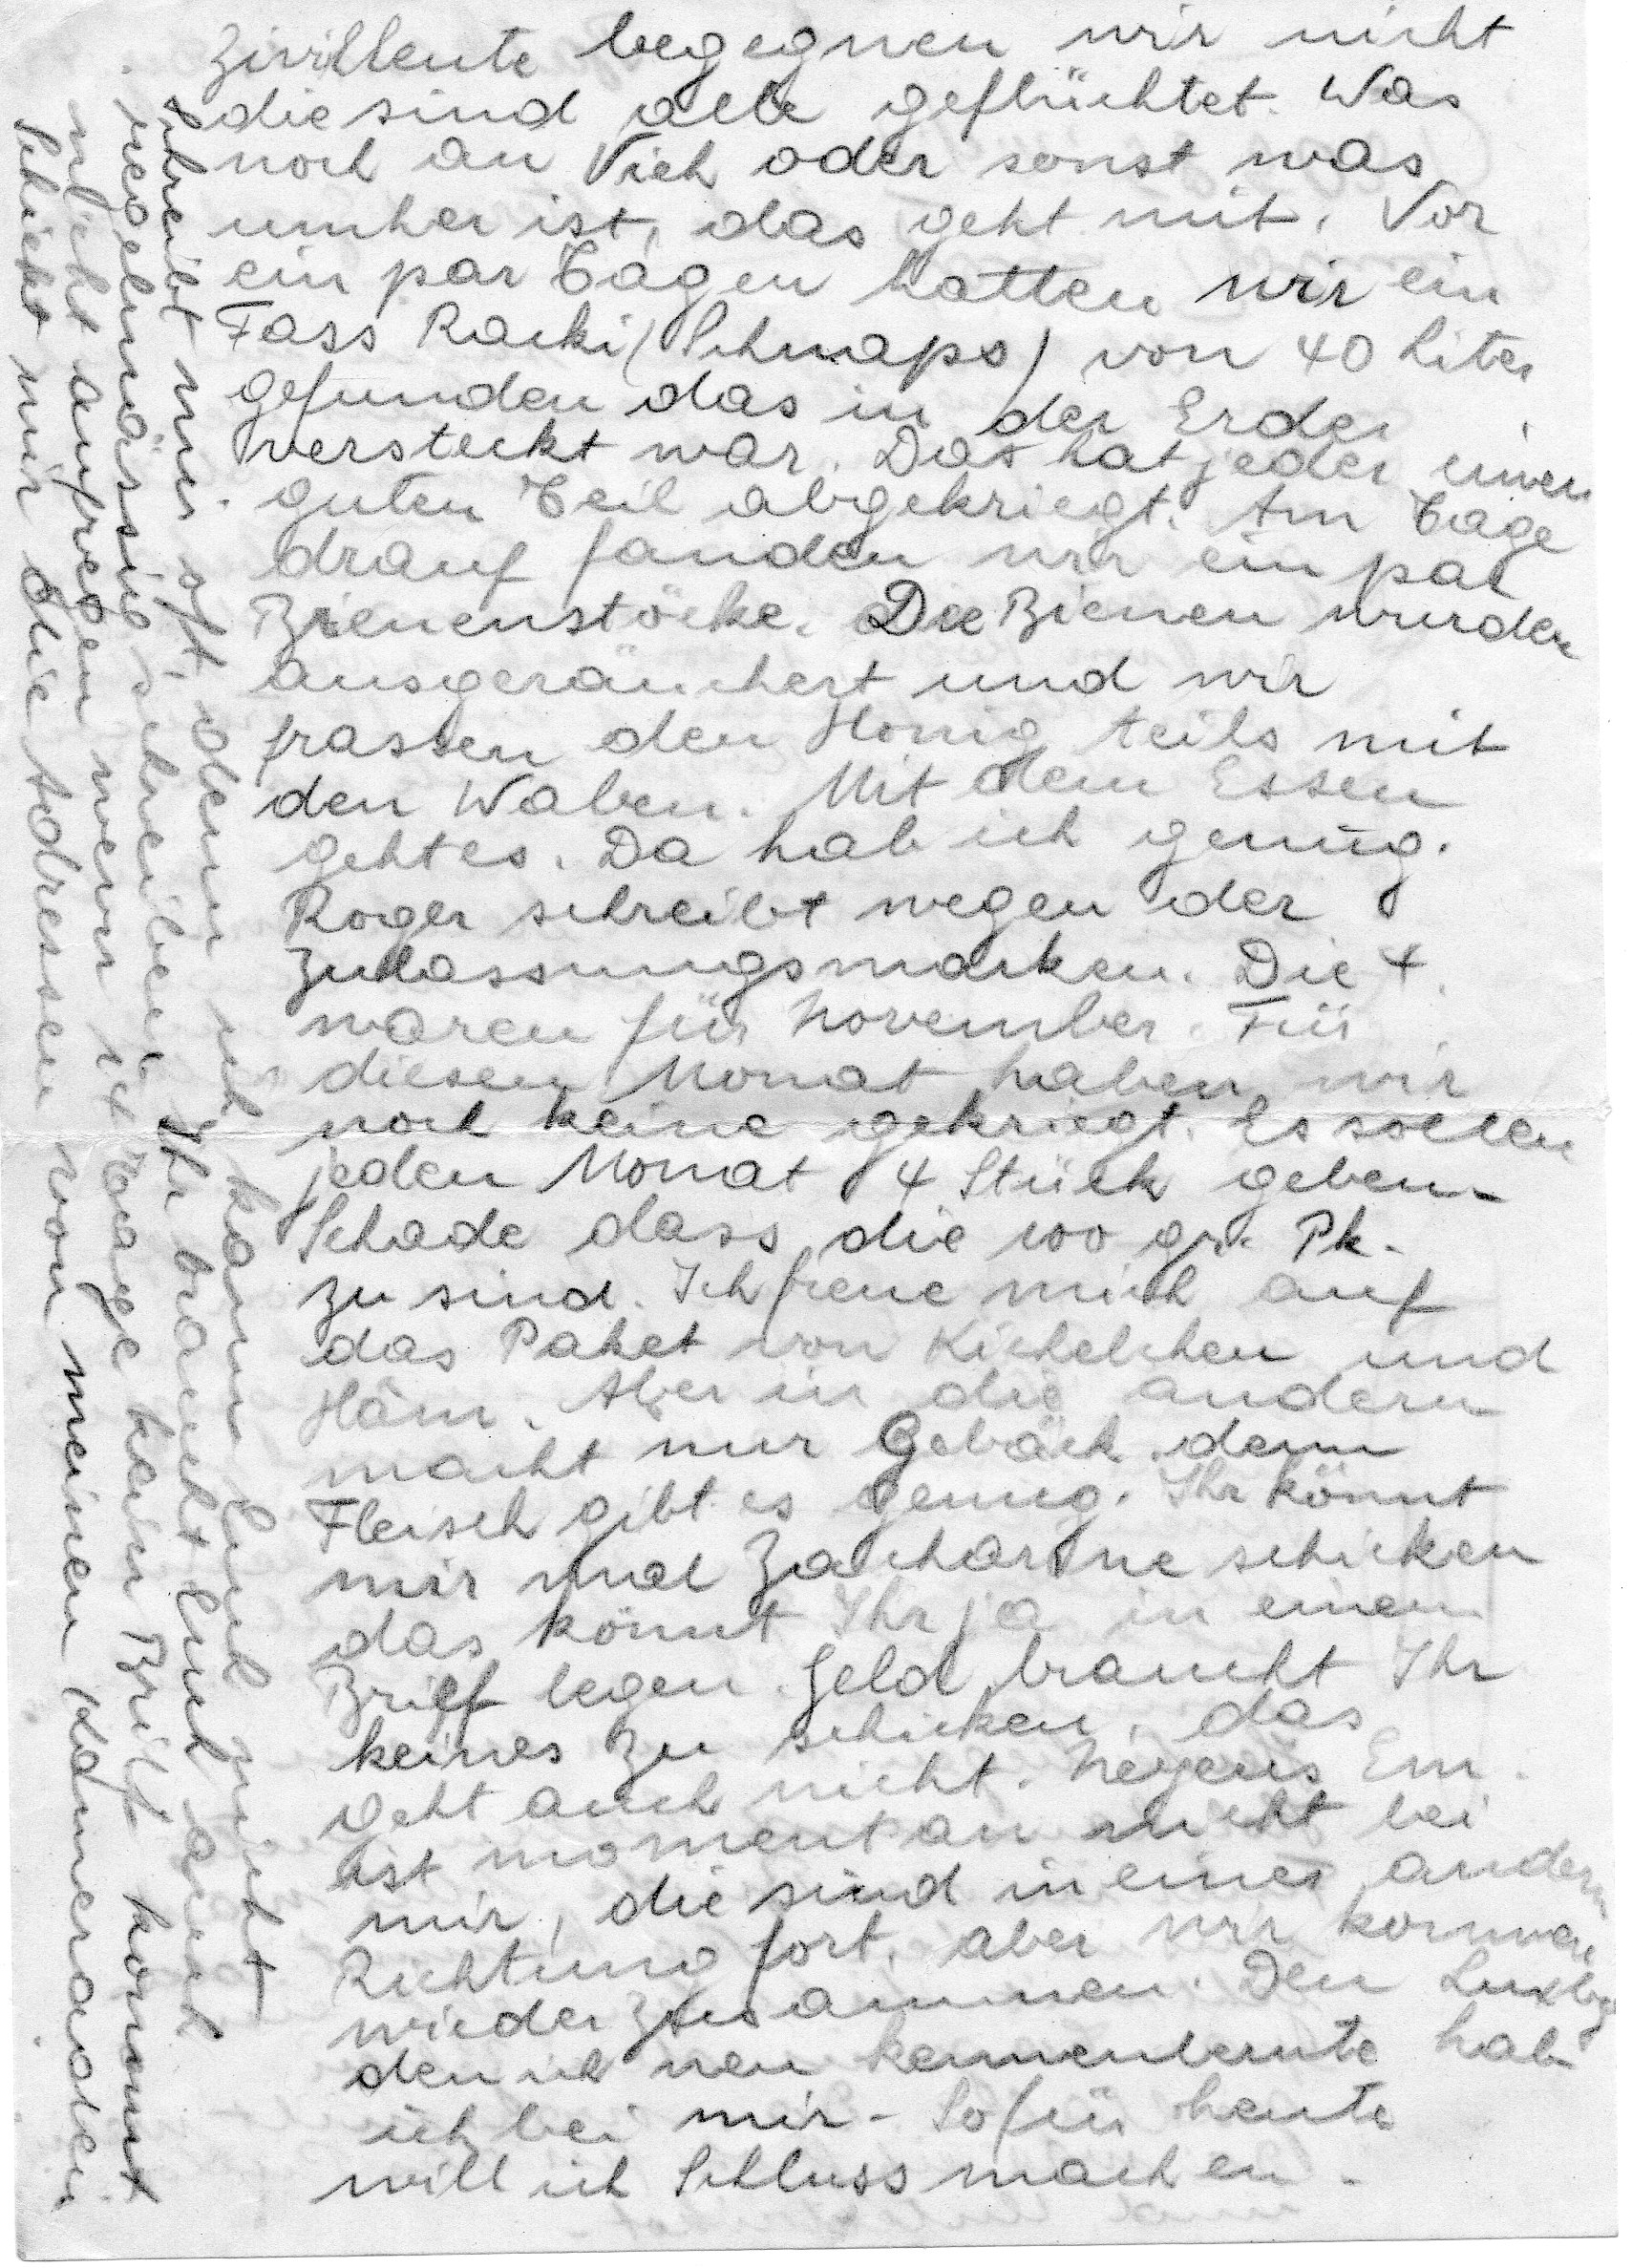 Zivilleute begegnen wir nicht
die sind alle geflüchtet. Was
noch an Vieh oder sonst was
umher ist, das geht mit. Vor
ein par Tagen hatten wir ein
Fass Racki (Schnaps) von 40 Liter
gefunden das in der Erde
versteckt war. Das hat jeder einen
guten Teil abgekriegt. Am Tage
drauf fanden wir ein par
Bienenstöcke. Die Bienen wurden
ausgeräuchert und wir
frassen den Honig teils mit
den Waben. Mit dem Essen
geht es. Da hab ich genug.
Roger schreibt wegen der
Zulassungsmarken. Die 4
waren für November. Für
diesen Monat haben wir
noch keine gekriegt. Es sollen
jeden Monat 4 Stück geben
Schade dass die 100 gr. Pk.
zu sind. Ich freue mich auf
das Paket von Kichelchen und
Häm. Aber in die andern
macht nur Gebäck denn
Fleisch gibt es genug. Ihr könnt
mir mal Zacharine schicken
das könnt Ihr ja in einen
Brief legen. Geld braucht Ihr
keines zu schicken, das
geht auch nicht. Neyens Em.
ist momentan nicht bei
mir, die sind in einer andern
Richtung fort, aber wir kommen
wieder zusammen. Den Luxbg
den ich neu kennenlernte hab
ich bei mir. So für heute
will ich Schluss machen.
schreibt nur oft, denn ich kann Euch nicht
regelmässig schreiben. Ihr braucht Euch auch
nicht aufregen wenn 14 Tage kein Brief kommt
Schickt mir die Adressen von meinen Kameraden